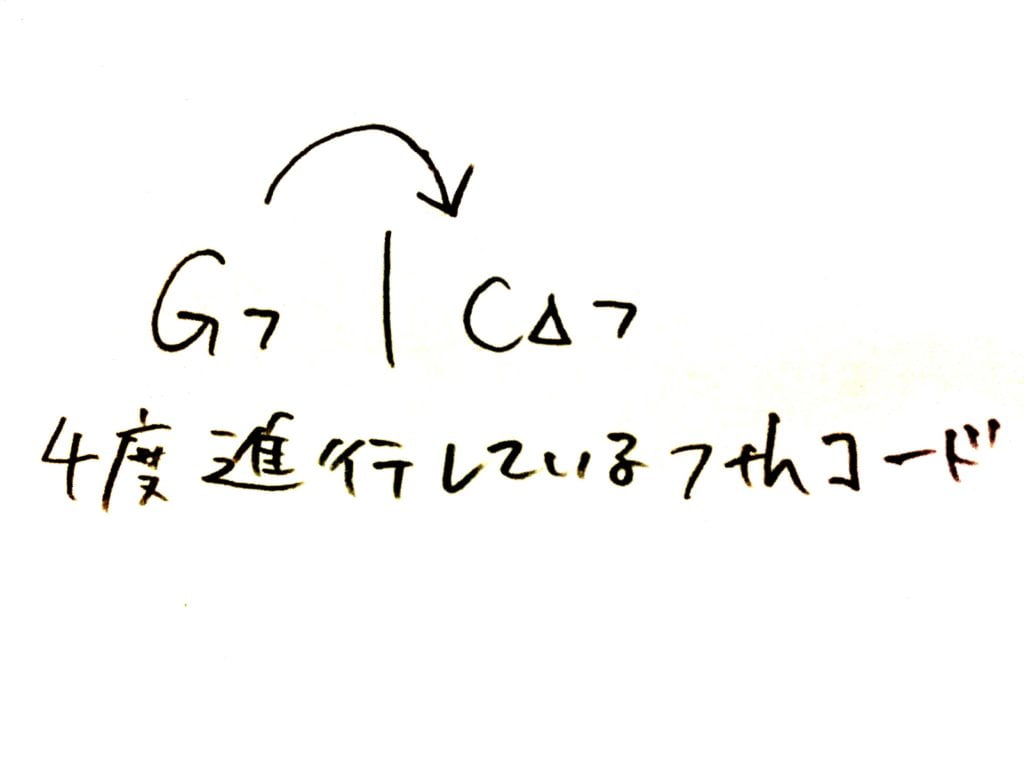 G7 | C△7
4度進行している7thコード